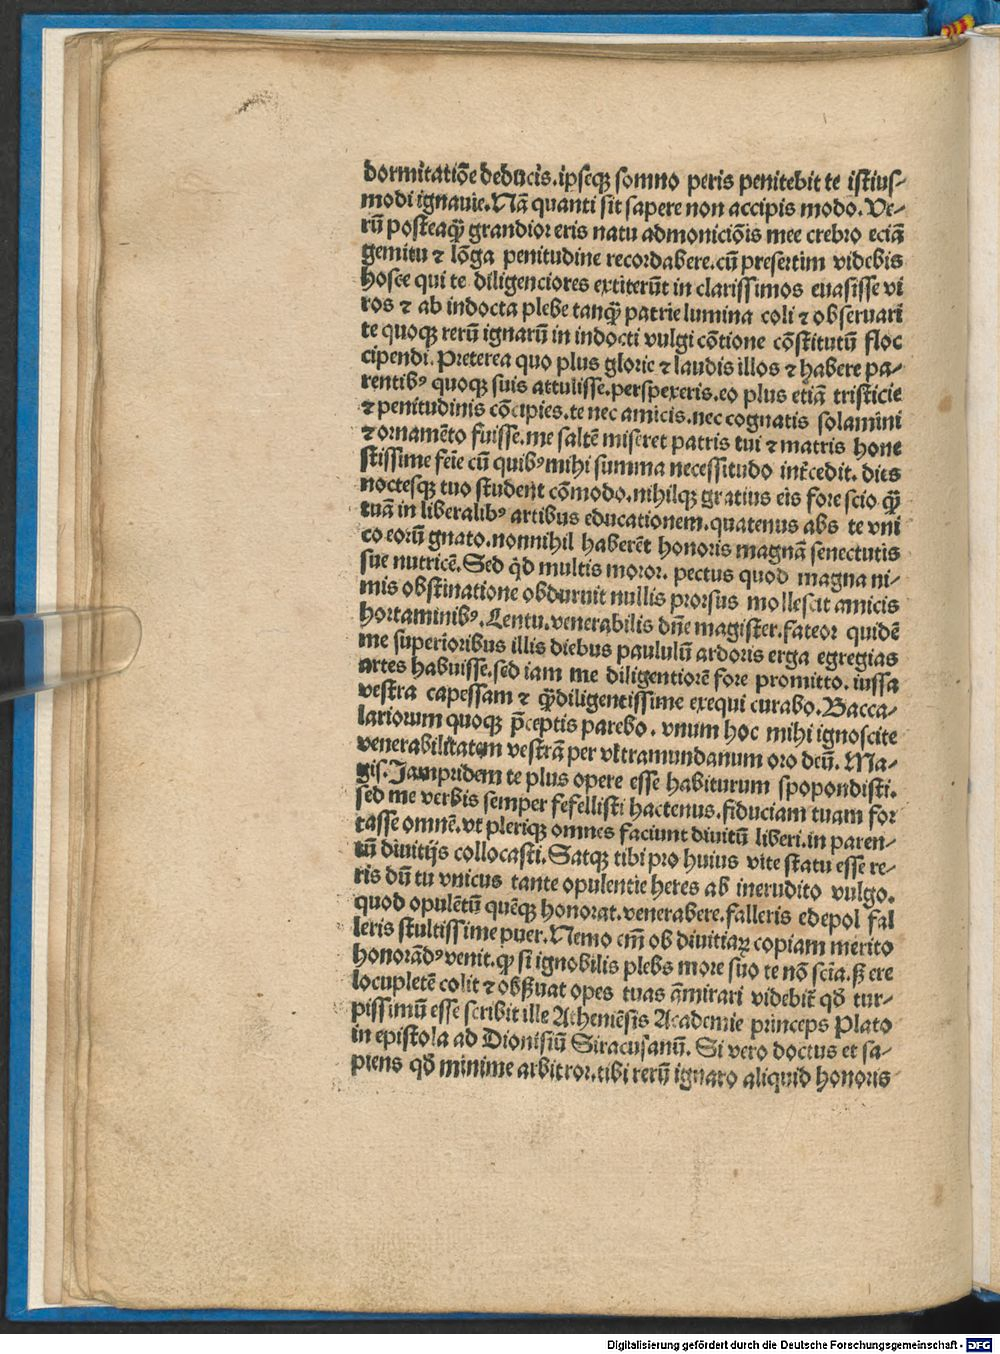 dormitatiōe deducis.ipseqꝫ somno peris penitebit te istius-
modi ignauie.Nā quanti sit sapere non accipis modo. Ve-
rū posteaqꝫ̄ grandior eris natu admoniciōis mee crebro eciā
gemitu ⁊ lōga penitudine recordabere.cū presertim videbis
hosce qui te diligenciores extiterūt in clarissimos euasisse vi
ros ⁊ ab indocta plebe tanqꝫ̄ patrie lumina coli ⁊ obseruari
te quoqꝫ rerū ignarū in indocti vulgi cōtione cōstitutū floc
cipendi. Preterea quo plus glorie ⁊ laudis illos ⁊ habere pa-
rentibꝰ quoqꝫ suis attulisse.perspexeris.eo plus etiā tristicie
⁊ penitudinis cōcipies.te nec amicis.nec cognatis solamini
⁊ ornamēto fuisse.me saltē miseret patris tui ⁊ matris hone
stissime feīe cū quibꝰ mihi summa necessitudo int̄cedit. dies
noctesqꝫ tuo student cōmodo.nihilqꝫ gratius eis fore scio qꝫ̄
tuā in liberalibꝰ artibus educationem.quatenus abs te vni
co eorū gnato.nonnihil haberēt honoris magnā senectutis
sue nutricē.Sed qd̄ multis moror. pectus quod magna ni-
mis obstinatione obduruit nullis prorsus mollescit amicis
hortaminibꝰ.Lentu.venerabilis dn̄e magister.fateor quidē
me superioribus illis diebus paululū ardoris erga egregias
artes habuisse.sed iam me diligentiorē fore promitto. iussa
vestra capessam ⁊ qꝫ̄diligentissime exequi curabo.Bacca-
lariorum quoqꝫ p̄ceptis parebo. vnum hoc mihi ignoscite
venerabilitatem vestrā per vltramundanum oro deū. Ma-
gis.Iampridem te plus opere esse habiturum spopondisti.
sed me verbis semper fefellisti hactenus.fiduciam tuam for
tasse omnē.vt pleriqꝫ omnes faciunt diuitū liberi.in paren-
tū diuitijs collocasti.Satqꝫ tibi pro huius vite statu esse re-
ris dū tu vnicus tante opulentie heres ab inerudito vulgo.
quod opulētū quēqꝫ honorat.venerabere.falleris edepol fal
leris stultissime puer.Nemo em̄ ob diuitiaꝝ copiam merito
honorādꝰ venit.qꝫ si ignobilis plebs more suo te nō sciā.sꝫ ere
locupletē colit ⁊ obßuat opes tuas āmirari videbit̄ qd̄ tur-
pissimū esse scribit ille Atheniēsis Academie princeps Plato
in epistola ad Dionisiū Siracusanū. Si vero doctus et sa-
piens qd̄ minime arbitror.tibi rerū ignaro aliquid honoris
Digitalisierung gefördert durch die Deutsche Forschungsgemeinschaft - DFG